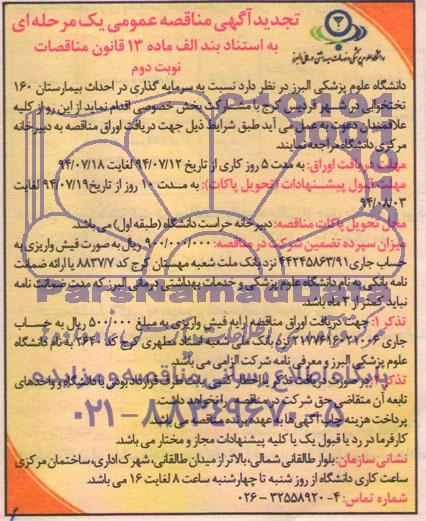 تجدیدآگهی مناقصه عمومی یک مرحله ای
به استناد بند الف ماده ۱۳ قانون مناقصات
نوبت دوم
دانشگاه علوم پزشکی و خدمات بهداشتی درمانی البرز
دانشگاه علوم پزشکی البرز در نظر دارد نسبت به سرمایه گذاری در احداث بیمارستان ۱۶۰
تختخوابی در شهر فردیس کرج با مشارکت بخش خصوصی اقدام نماید از این رو از کلیه
علاقمندان دعوت به عمل می آید طبق شرایط ذیل جهت دریافت اوراق مناقصه به دبیرخانه
مرکزی دانشگاه مراجعه نمایند.
مهلت دریافت اوراق: به مدت ۵ روز کاری از تاریخ ۹۴/۰۷/۱۲ لغایت ۹۴/۰۷/۱۸
مهلت قبول پیشنهادات (تحویل پاکات): به مدت ۱۰ روز از تاریخ ۹۴/۰۷/۱۹ لغایت
۹۴/۰۸/۰۳
محل تحویل پاکات مناقصه: دبیرخانه حراست دانشگاه (طبقه اول) می باشد.
میزان سپرده تضمین شرکت در مناقصه: ۹۰۰/۰۰۰/۰۰۰ ریال به صورت فیش واریزی به
حساب جاری ۴۴۲۴۵۸۶۳/۹۱ نزد بانک ملت شعبه مهستان کرج کد ۸۸۳۷/۷ یا ارائه ضمانت
نامه بانکی به نام دانشگاه علوم پزشکی و خدمات بهداشتی درمانی البرز که مدت ضمانت نامه
نباید کمتر از ۳ ماه باشد.
تذکر ۱: جهت دریافت اوراق مناقصه ارایه فیش واریزی به مبلغ ۵۰۰/۰۰۰ ریال به حساب
جاری ۲۱۷۷۶۹۶۰۲۱۰۰۶ نزد بانک ملی شعبه استاد مطهری کرج کد ۲۶۴۱ به نام دانشگاه
علوم پزشکی البرز و معرفی نامه شرکت الزامی می باشد.
تذکر ۲: در صورت دریافت تذکر یا اخطار کتبی به طرف قرارداد بودن با دانشگاه و واحدهای
تابعه آن متقاضی حق شرکت در مناقصه را نخواهد داشت.
پرداخت هزینه چاپ آگهی ها به عهده برنده مناقصه می باشد.
کارفرما در رد یا قبول یک یا کلیه پیشنهادات مجاز و مختار می باشد.
نشانی سازمان: بلوار طالقانی شمالی، بالاتر از میدان طالقانی، شهرک اداری، ساختمان مرکزی
ساعت کاری دانشگاه از روز شنبه تا چهارشنبه ساعت ۸ لغایت ۱۶ می باشد.
شماره تماس: ۴- ۳۲۵۵۸۹۲۰ - ۰۲۶
ParsNamadData
پایگاه اطلاع رسانی مناقصه و مزایده
۰۲۱-۸۸۳۴۹۶۷۰-۵